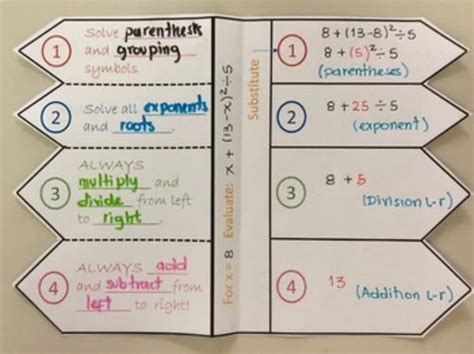 1
Solve parenthesis
and grouping
symbols
2
Solve all exponents
and roots.
3
ALWAYS
multiply and
divide from left
to right.
4
ALWAYS add
and subtract from
left to right!
For x = 8 Evaluate: x + (13-x)²÷5
Substitute
1
8 + (13-8)²÷5
8 + (5)²÷5
(parentheses)
2
8 + 25 ÷ 5
(exponent)
3
8 + 5
(Division L-r)
4
13
(Addition L-r)